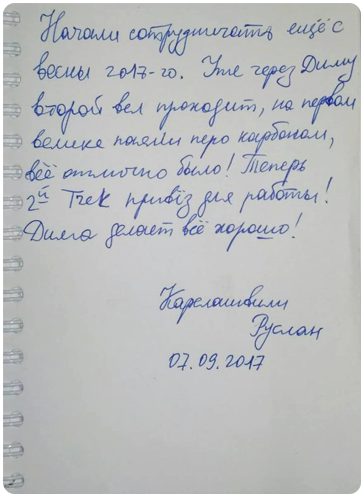 Начали сотрудничать ещё с
весны 2017-го. Уже через Диму
второй вел проходит, на первом
велике паяли перо карбоном,
всё отлично было! Теперь
2й Trek привіз для работы!
Дима делает всё хорошо!
Карелашвили
Руслан
07.09.2017